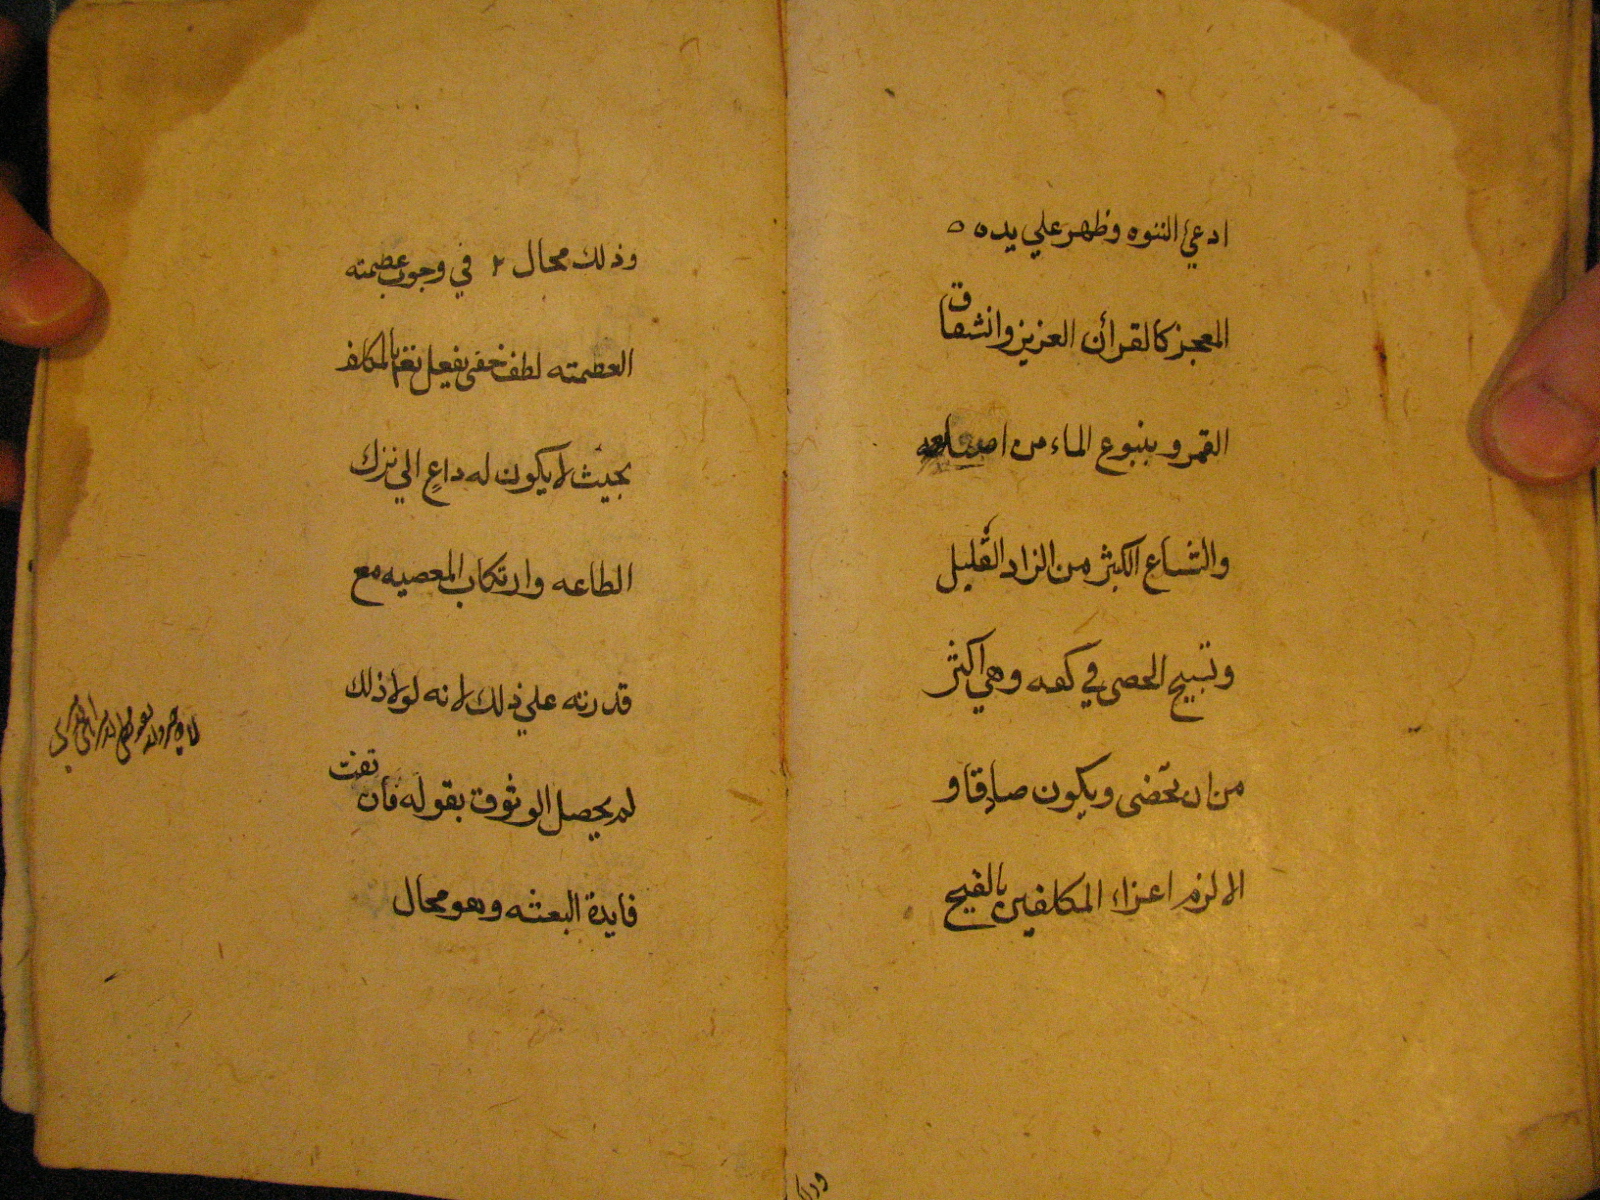 ادعي النبوه وظهر علي يده ه
المعجز كالقرأن العزيز وانشقاق
القمر و ينبوع الماء من اصابعه
والشباع الكثير من الزاد القليل
وتسبيح الحصى في كفه وهي اكثر
من ان تحصى ويكون صادقا و
الا لزم اعزاء المكلفين بالقبيح
وذلك محال ٢ في وجوب عصمته
العصمته لطف خفى يفعل بالمكلف
بحيث لا يكون له داعٍ الي ترك
الطاعه وارتكاب المعصيه مع
قدرته علي ذلك لانه لولا ذلك
لم يحصل الوثوق بقوله فان تفت
فايدة البعثه وهو محال